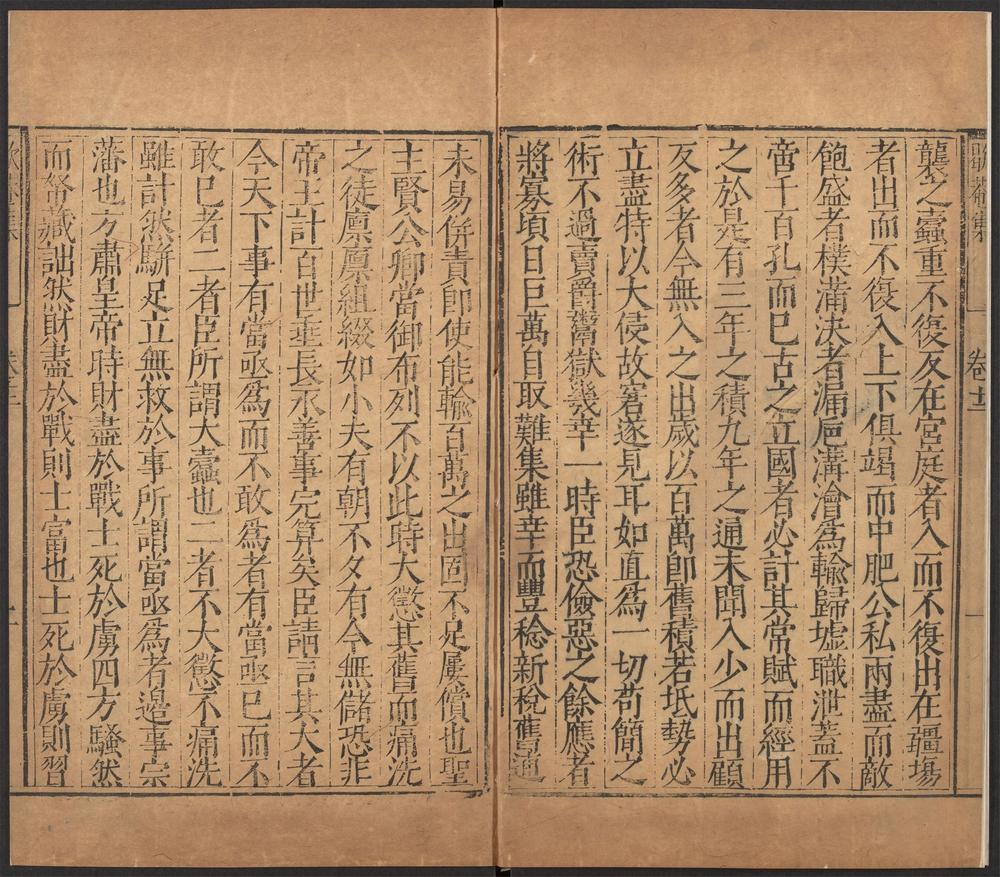 襲之蠹重不復反在宮庭者入而不復出在疆場
者出而不復入上下俱竭而中肥公私兩盡而敵
飽盛者樸滿決者漏巵溝澮為輸歸墟職泄蓋不
啻千百孔而已古之立國者必計其常賦而經用
之於是有三年之積九年之通未聞入少而出顧
反多者今無入之出歲以百萬即舊積若坻勢必
立盡特以大侵故窘遂見耳如直為一切苟簡之
術不過賣爵鬻獄幾幸一時臣恐儉惡之餘應者
將寡頃日巨萬自取難集雖幸而豐稔新稅舊逋
未易併責即使能輸百萬之出固不足屢償也聖
主賢公卿當御布列不以此時大懲其舊而痛洗
之徒廩廩組綴如小夫有朝不夕有今無儲恐非
帝王計百世垂長永善事完算矣臣請言其大者
今天下事有當亟為而不敢為者有當亟已而不
敢已者二者臣所謂大蠹也二者不大懲不痛洗
雖計然駢足立無救於事所謂當亟為者邊事宗
藩也方肅皇帝時財盡於戰士死於虜四方騷然
而帑藏詘然財盡於戰則士富也士死於虜則習
卷十三